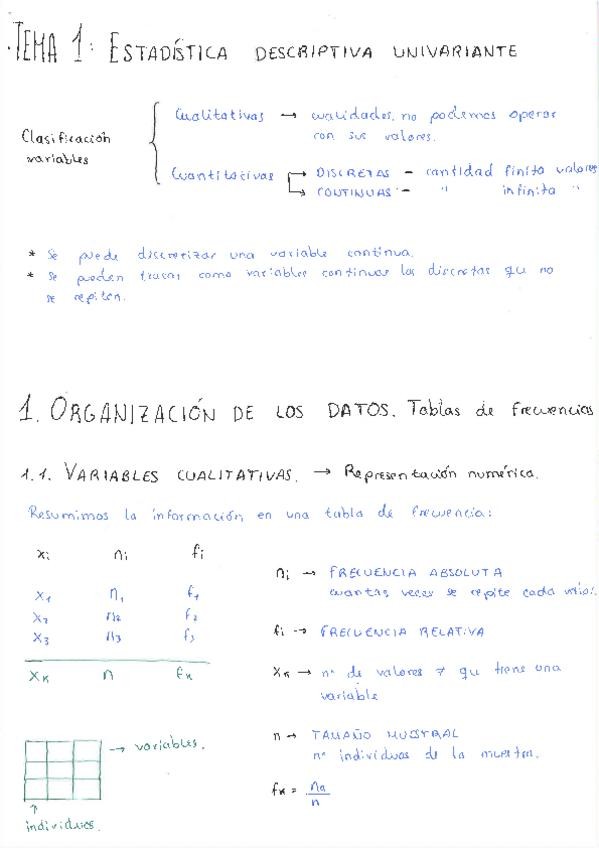 ·TEMA 1: ESTADÍSTICA DESCRIPTIVA UNIVARIANTE
Clasificación variables
Cualitativas → cualidades, no podemos operar
con sus valores.
Cuantitativas → DISCRETAS – cantidad finita valores
→ CONTINUAS – " infinita "
* Se puede discretizar una variable continua.
* Se pueden tratar como variables continuas las discretas que no
se repiten.
1. ORGANIZACIÓN DE LOS DATOS. Tablas de frecuencias
1.1. VARIABLES CUALITATIVAS. → Representación numérica.
Resumimos la información en una tabla de frecuencia:
xi ni fi
x1 n1 f1
x2 n2 f2
x3 n3 f3
xk n fk
ni → FRECUENCIA ABSOLUTA
cuantas veces se repite cada valor.
fi → FRECUENCIA RELATIVA
xk → nº de valores ≠ que tiene una
variable
n → TAMAÑO MUESTRAL
nº individuos de la muestra.
fk =
n
→ variables.
↑
individuos.